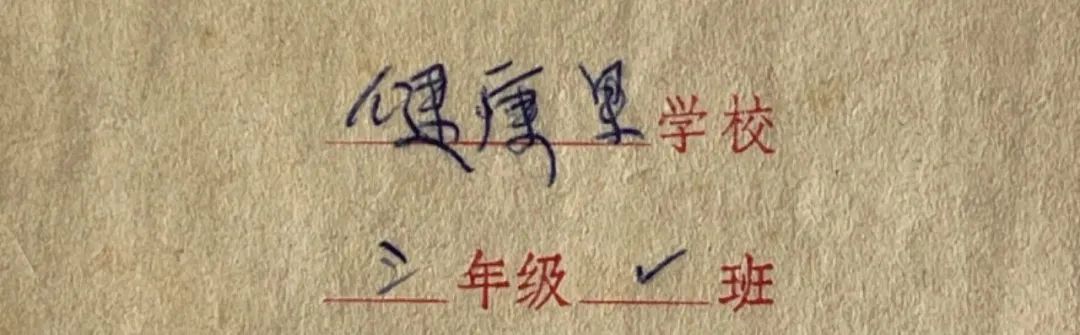 健康里学校
三年级 ✓ 班